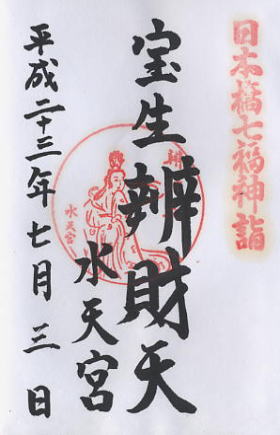 日本橋七福神詣
宝生辨財天
水天宮
平成二十三年七月三日
水天宮